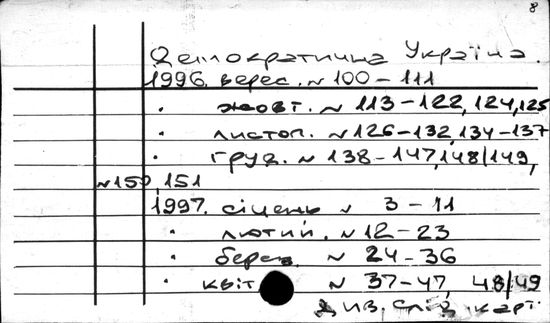 8
Демократична Україна.
1996. верес. № 100-111
· жовт. № 113-122, 124, 125
· листоп. № 126-132, 134-137
· груд. № 138-147, 148/149,
№ 150, 151
1997. січень № 3-11
· лютий. № 12-23
· берез. № 24-36
· квіт № 37-47, 48/49
Див. слід. карт.